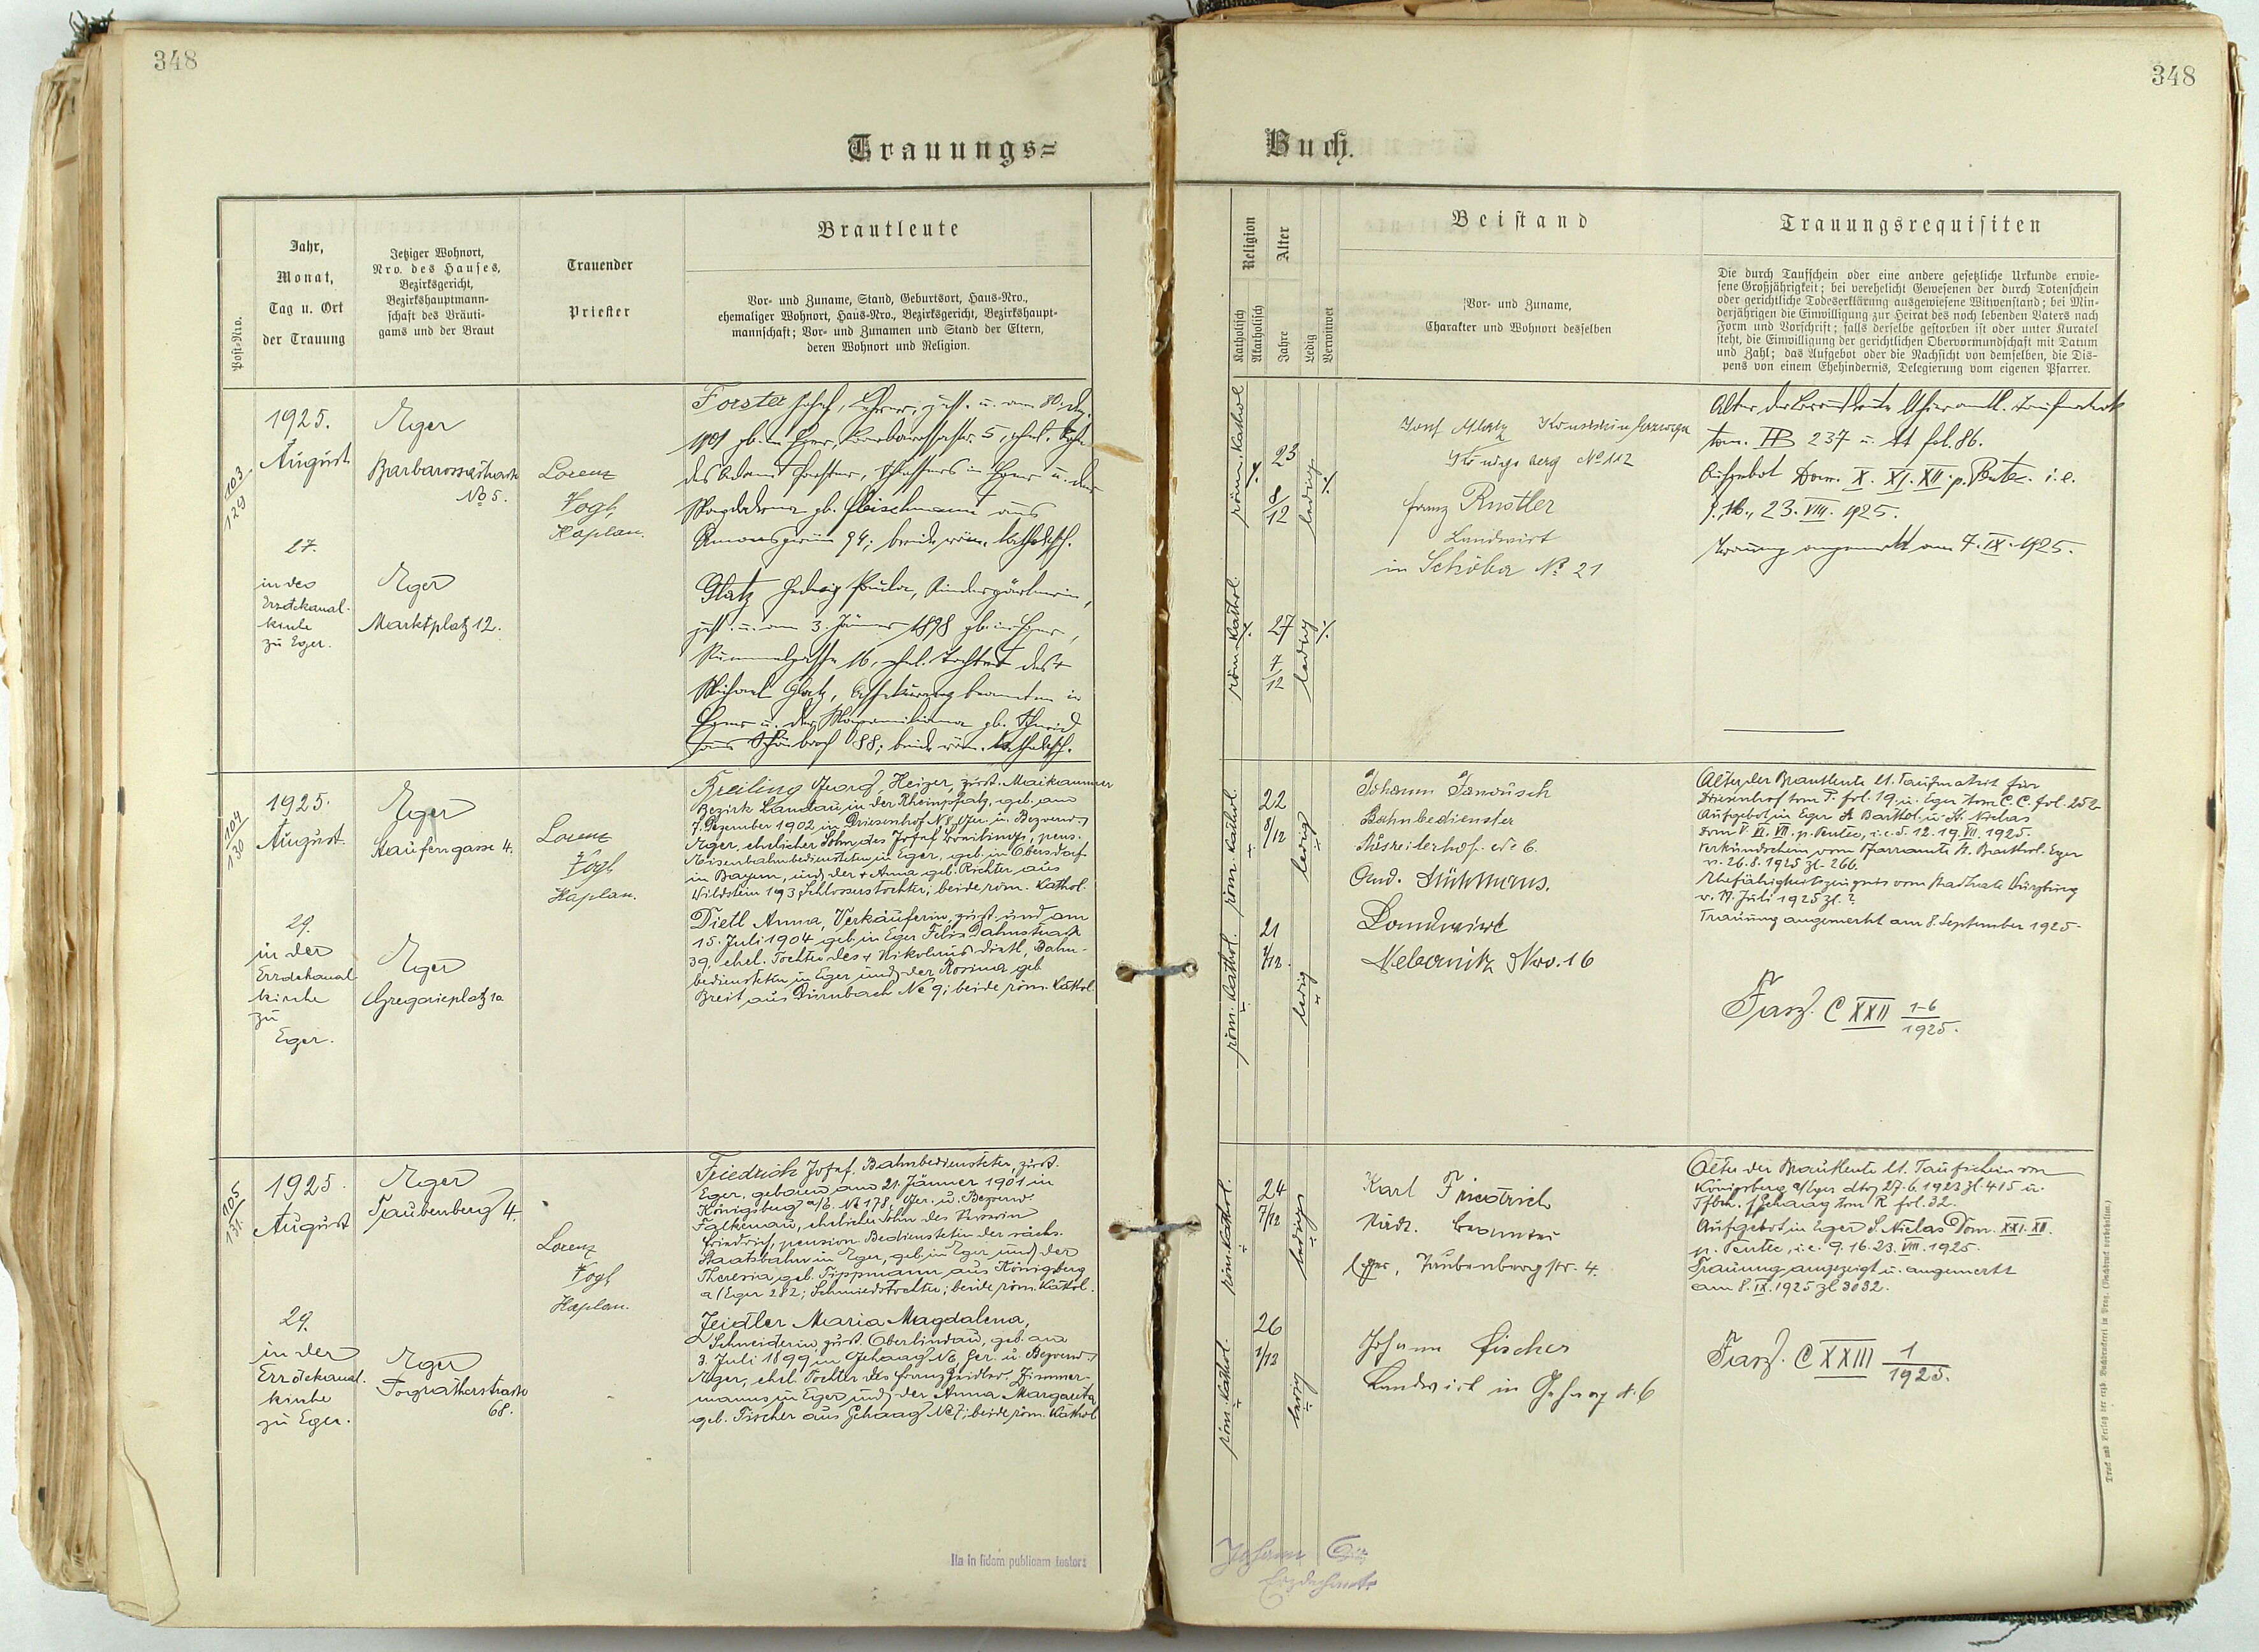 348
348
Trauungs=
Buch.
Post-Nro.
Jahr,
Monat,
Tag u. Ort
der Trauung
Jetziger Wohnort,
Nro. des Hauses,
Bezirksgericht,
Bezirkshauptmann-
schaft des Bräuti-
gams und der Braut
Trauender
Priester
Brautleute
Vor- und Zuname, Stand, Geburtsort, Haus-Nro.,
ehemaliger Wohnort, Haus-Nro., Bezirksgericht, Bezirkshaupt-
mannschaft; Vor- und Zunamen und Stand der Eltern,
deren Wohnort und Religion.
Religion
Katholisch
Akatholisch
Alter
Jahre
Ledig
Verwitwet
Beistand
Vor- und Zuname,
Charakter und Wohnort desselben
Trauungsrequisiten
Die durch Taufschein oder eine andere gesetzliche Urkunde erwie-
sene Großjährigkeit; bei verehelicht Gewesenen der durch Totenschein
oder gerichtliche Todeserklärung ausgewiesene Witwenstand; bei Min-
derjährigen die Einwilligung zur Heirat des noch lebenden Vaters nach
Form und Vorschrift; falls derselbe gestorben ist oder unter Kuratel
steht, die Einwilligung der gerichtlichen Obervormundschaft mit Datum
und Zahl; das Aufgebot oder die Nachsicht von demselben, die Dis-
pens von einem Ehehindernis, Delegierung vom eigenen Pfarrer.
103
129
1925.
August
27.
in der
Erzdekanal-
kirche
zu Eger.
Eger
Barbarossastrasse
No 5.
Eger
Marktplatz 12.
Lorenz
Vogl,
Kaplan.
Forster Josef, Lehrer, zust. u. am 30. Dez.
1901 gb. in Eger, Barbarossastr. 5, ehel. Sohn
des Adam Forster, Schaffners in Eger u. der
Magdalena gb. Fleischmann aus
94; beide röm. katholisch.
Glatz Hedwig Paula, Kindergärtnerin,
zust. u. am 3. Jänner 1898 gb. in Eger,
16, ehel. Tochter des +
Michael Glatz, beamten in
Eger u. der Maximiliana gb. Schmied
aus Schönbach 88; beide röm. katholisch.
röm. kathol.
23
8/12
ledig
röm. kathol.
27
7/12
ledig
Josef Glatz
Königsberg No 112
Franz Rustler
Landwirt
in Schöba No 21
Alter der Brautleute
tom. 237 u. fol. 86.
Aufgebot Dom. X. XI. XII p. Pentec. i.e.
9., 16., 23. VIII. 1925.
Trauung angemerkt am 7. IX. 1925.
104
130
1925.
August
29.
in der
Erzdekanal
kirche
zu
Eger.
Eger
Staufengasse 4.
Eger
Gregorieplatz 1a
Lorenz
Vogl,
Kaplan.
Breiling Georg, Heizer, zust. Maikammer
Bezirk Landau in der Rheinpfalz, geb. am
7. Dezember 1902 in Driesenhof No 8, Ger. u. Bezverw.
Eger, ehelicher Sohn des Josef Breiling, pens.
Eisenbahnbediensteten in Eger, geb. in Obersdorf
in Bayern, und der + Anna geb. Richter aus
Wildstein 193, Schlosserstochter; beide röm. kathol.
Dietl Anna, Verkäuferin, zust. und am
15. Juli 1904 geb. in Eger Felix Dahnstrasse
39, ehel. Tochter des + Nikolaus Dietl, Bahn-
bediensteten in Eger und der Rosina geb.
Breit aus Dürnbach No 9; beide röm. kathol.
röm. kathol.
22
8/12
ledig
röm. kathol.
21
1/12.
ledig
Johann Janousch
Bahnbediensteter
No 6.
And.
Landwirt
Nebanitz Nro. 16
Alter der Brautleute lt. Taufmatrik für
Driesenhof tom P. fol. 19 u. Eger tom C.C. fol. 252
Aufgebot in Eger St Barthol. u. St. Niclas
Dom V. VI. VII. p. Pentec, i.e. 5. 12. 19. VII. 1925.
Verkündschein vom Pfarramte St. Barthol. Eger
v. 26.8.1925 zl. 266.
Ehefähigkeitszeugnis vom Stadtrate Würzburg
v. Juli 1925 zl. ?
Trauung angemerkt am 8. September 1925.
Fasz. C XXII 1-6
1925.
105
131.
1925.
August
29.
in der
Erzdekanal.
kirche
zu Eger.
Eger
Taubenberg 4.
Eger
68.
Lorenz
Vogl,
Kaplan.
Friedrich Josef, Bahnbediensteter, zust.
Eger, geboren am 21. Jänner 1901 in
Königsberg a/E. No 178, Ger. u. Bezverw.
Falkenau, ehelicher Sohn des
Friedrich, pension. Bediensteten der sächs.
Staatsbahn in Eger, geb. in Eger und der
Theresia geb. Tippmann aus Königsberg
a/Eger 282; Schmiedstochter; beide röm. kathol.
Zeidler Maria Magdalena,
Schneiderin, zust. Oberlindau, geb. am
3. Juli 1899 in Gehaag No 6, Ger. u. Bezverw.
Eger, ehel. Tochter des Franz Zeidler, Zimmer-
manns in Eger und der Anna Margareta
geb. Fischer aus Gehaag No 7; beide röm. kathol
röm. kathol.
24
7/12
ledig
röm. kathol.
26
1/12
ledig
Karl Friedrich
Beamter
Eger, Taubenbergstr. 4.
Johann Fischer
Landwirt in Gehaag No. 6
Alter der Brautleute lt. Taufschein von
Königsberg a/Eger dto 27.6.1923 zl. 415 u.
Tfbm. f. Gehaag tom R fol. 32.
Aufgebot in Eger S. Niclas Dom. X XI. XII.
p. Pentec, i.e. 9. 16. 23. VIII. 1925.
Trauung angezeigt u. angemerkt
am 8. IX. 1925 zl 3032.
Fasz. C XXIII 1
1925.
Ita in fidem publicam testor:
Johann
Erzdechant.
Druck und Verlag der erzb. Buchdruckerei in Prag. (Nachdruck vorbehalten.)